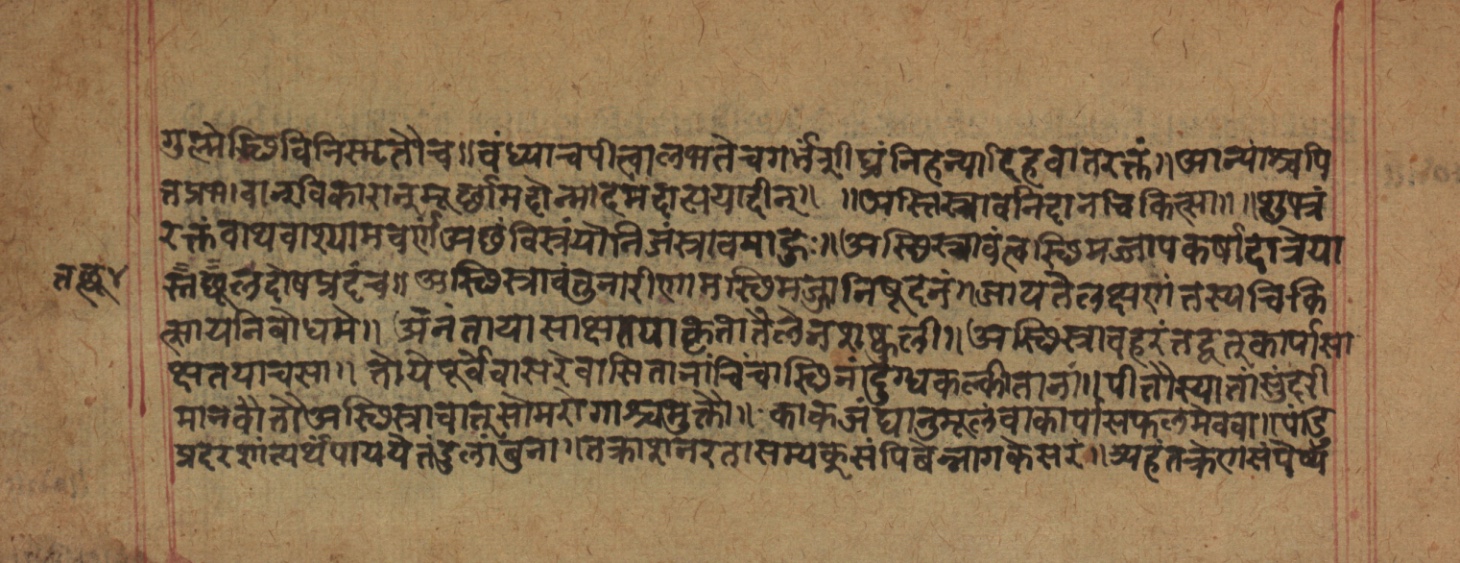 गुल्मेस्छिविनिस्मृतौच॥वंध्याचपीत्वालभतेचगर्भंशीघ्रंनिहन्यादिहवातरक्तं॥आन्यांश्चपि
त्तप्रभावान्विकारान्मूर्छामदोन्मादमदात्ययादीन्॥ ॥अस्तिस्त्रावनिदानचिकित्सा॥ ॥शुभ्रं
रक्तंवाथवाश्यामवर्णंअछंविस्त्रंयोनिजंस्त्रावमाहुः॥अस्थिस्त्रावंत्वस्छिमज्जापकर्षादात्रेया
तछु४
स्तैछूलदोषप्रदंच॥अस्थिस्त्रावंतुनारीणामस्छिमज्जानिषूदनं॥जायतेलक्षणंतस्यचिकि
त्सायनिबोधमे॥ अनंतायासाक्षतयाकृतातैलेनशष्कुली॥अस्थिस्त्रावहरंतद्वत्कार्पासा
क्षतयाचसा॥ तोयेपूर्वेवासरेवासितानांचिंचास्छिनांदुग्धकल्कीतानां॥पीतौस्यातांसुंदरी
मानवौतौअस्थिस्त्रावात्सोमरोगाश्चमुक्तौ॥ काकजंघानुमूलंवाकार्पासफलमेववा॥पांडु
प्रदरशांत्यर्थंपाययेत्तंडुलांबुना॥तक्राशनरतासम्यक्सुसंपिबेन्नागकेसरं॥त्र्यहंतक्रेणसंपेष्यं